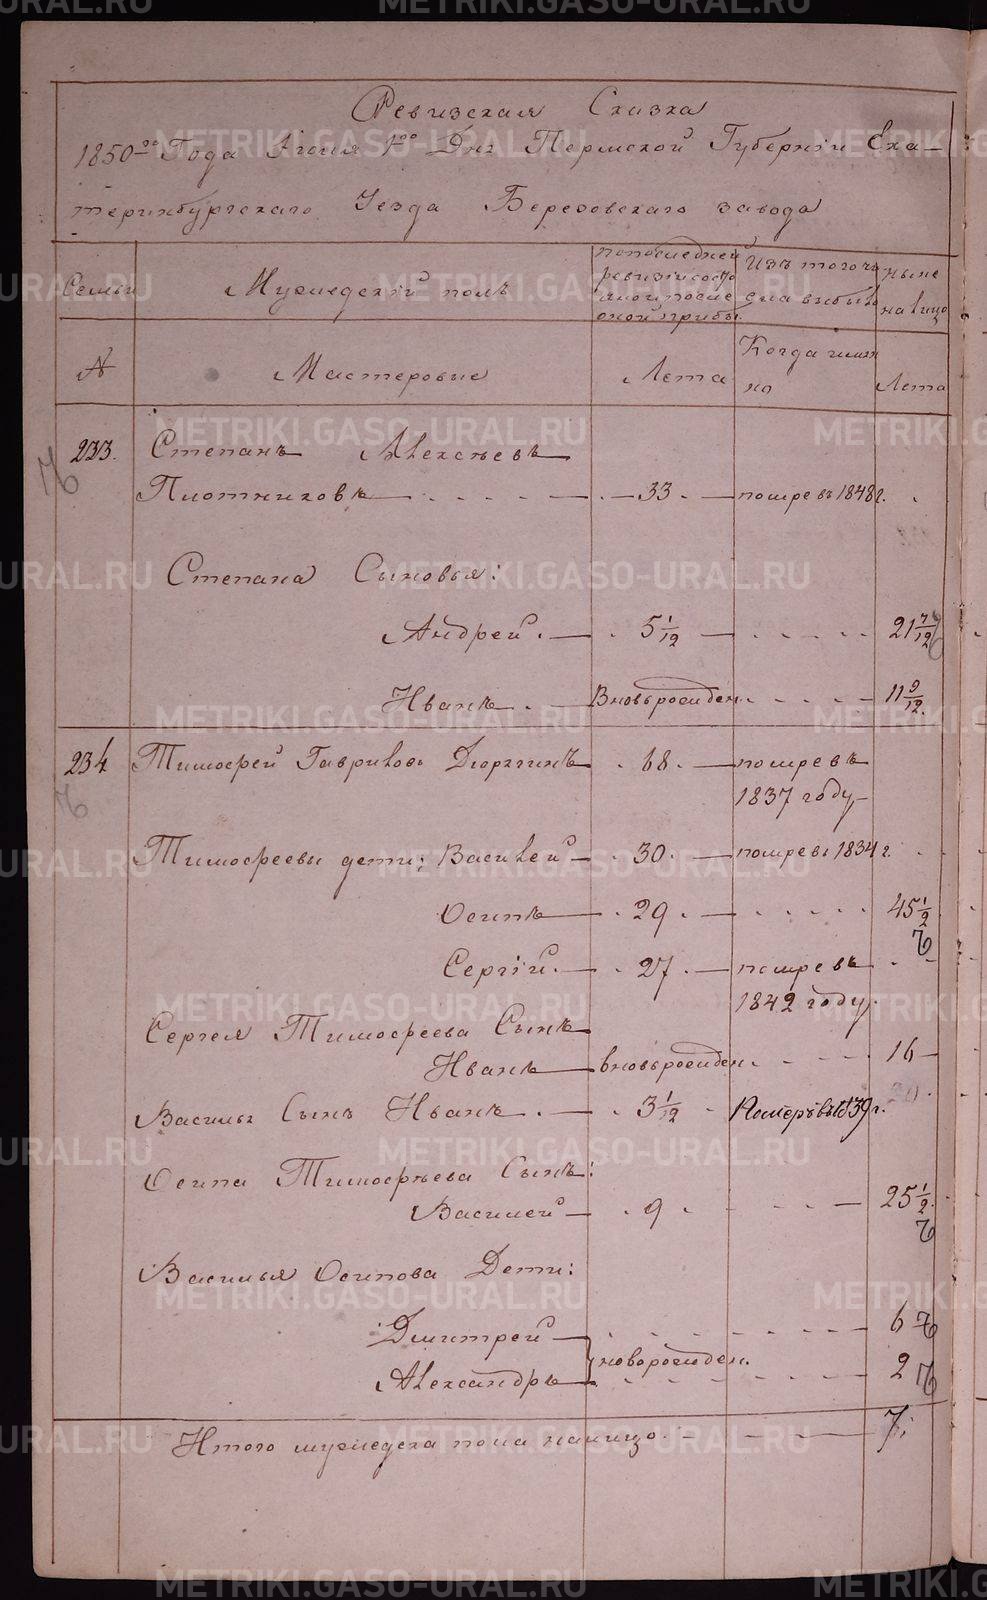 Ревизская Сказка
1850го Года Июня 1го Дня Пермской Губернiи Ека-
теринбургскаго Уезда Березовскаго завода
Семьи
Мужедескiй полъ
попоследней
ревизiи состо
яло и после
оной прибы.
Изъ того чи
сла выбыло
ныне
на лицо
№
Мастеровые
Лета
Когда имян
но
Лета
233. Степанъ Алексѣевъ
Плотниковъ 33 помре въ 1848 г.
Степана Сыновья:
Андрей 5 1/12 21 7/12
Иванъ Вновьрожден. 11 9/12
234 Тимофей Гавриловъ 68 помре въ
1837 году
Тимофеевы дети: Василей 30 помре въ 1834 г.
Осипъ 29 45 1/2
Сергiй 27 помре въ
1842 году
Сергея Тимофеева Сынъ
Иванъ вновьрожден. 16
Василья Сынъ Иванъ 3 1/12 Померъ въ 1839 г.
Осипа Тимофѣева Сынъ:
Василей 9 25 1/2
Василья Осипова Дети:
Дмитрей 6
новорожден.
Александръ 2
Итого мужедска пола налицо 7.
METRIKI.GASO-URAL.RU